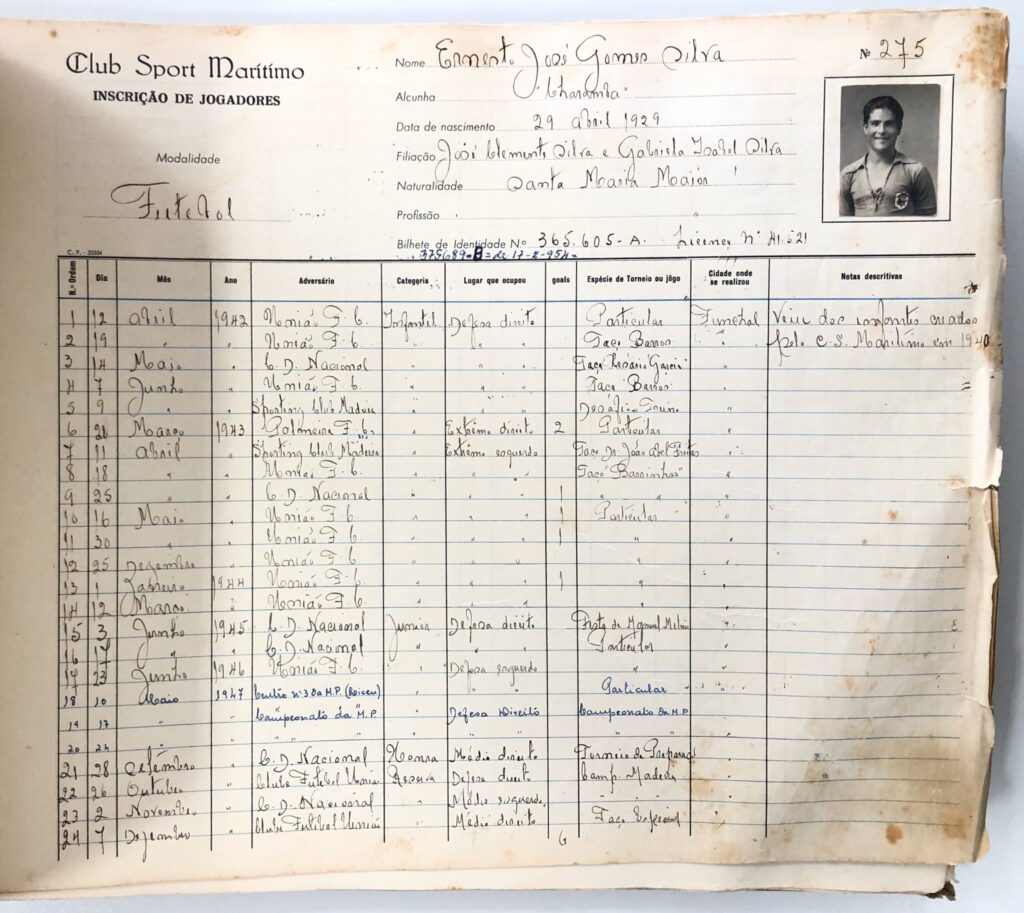 Club Sport Marítimo
INSCRIÇÃO DE JOGADORES
Modalidade
Futebol
Nome Ernesto José Gomes Silva
Nº 275
Alcunha
Data de nascimento 29 abril 1929
Filiação José Clemente Silva e Gabriela Izabel Silva
Naturalidade Santa Maria Maior
Profissão
Bilhete de Identidade Nº 365.605-A. Licença Nº 41.521
375689-B= de 17-2-954=
C. P. - 23654
N.º Ordem Dia Mês Ano Adversário Categoria Lugar que ocupou goals Espécie de Torneio ou jôgo Cidade onde se realizou Notas descritivas
1 12 Abril 1942 União F. C. Infantil Defesa direito Particular Funchal Veiu dos infantis criados
2 19 " " União F. C. " " " Taça Barros " pelo C. S. Marítimo em 1940
3 14 Maio " C. D. Nacional " " " Taça Rosário Garcia "
4 7 Junho " União F. C. " " " Taça Barros " =
5 9 " " Sporting Club Madeira " " " "
6 21 Março 1943 Palmeira F. C. " Extrêmo direito 2 Particular "
7 11 Abril " Sporting Club Madeira " Extrêmo esquerdo Taça Dr. João Abel Freitas "
8 18 " " União F. C. " " " Taça "Barrinhas" "
9 25 " " C. D. Nacional " " " 1 " "
10 16 Maio " União F. C. " " " 1 Particular "
11 30 " " União F. C. " " " 1 " "
12 25 Dezembro " União F. C. " " " " "
13 1 Janeiro 1944 União F. C. " " " 1 " "
14 12 Março " União F. C. " " " " "
15 3 Junho 1945 C. D. Nacional Junior Defesa direito "
16 17 " " C. D. Nacional " " " Particular "
17 23 Junho 1946 União F. C. " Defesa esquerdo " "
18 10 Maio 1947 Centro nº 3 da M.P. (Liceu) " " " Particular "
19 17 " " Campeonato da M.P. " Defesa Direito Campeonato da M.P. "
20 24 " " " " " " " "
21 28 Setembro " C. D. Nacional Honra Médio direito "
22 26 Outubro " Clube Futebol União Reserva Defesa direito Camp. Madeira "
23 2 Novembro " C. D. Nacional " Médio esquerdo, " "
24 7 Dezembro " Clube Futebol União " Médio direito Taça Especial "
6